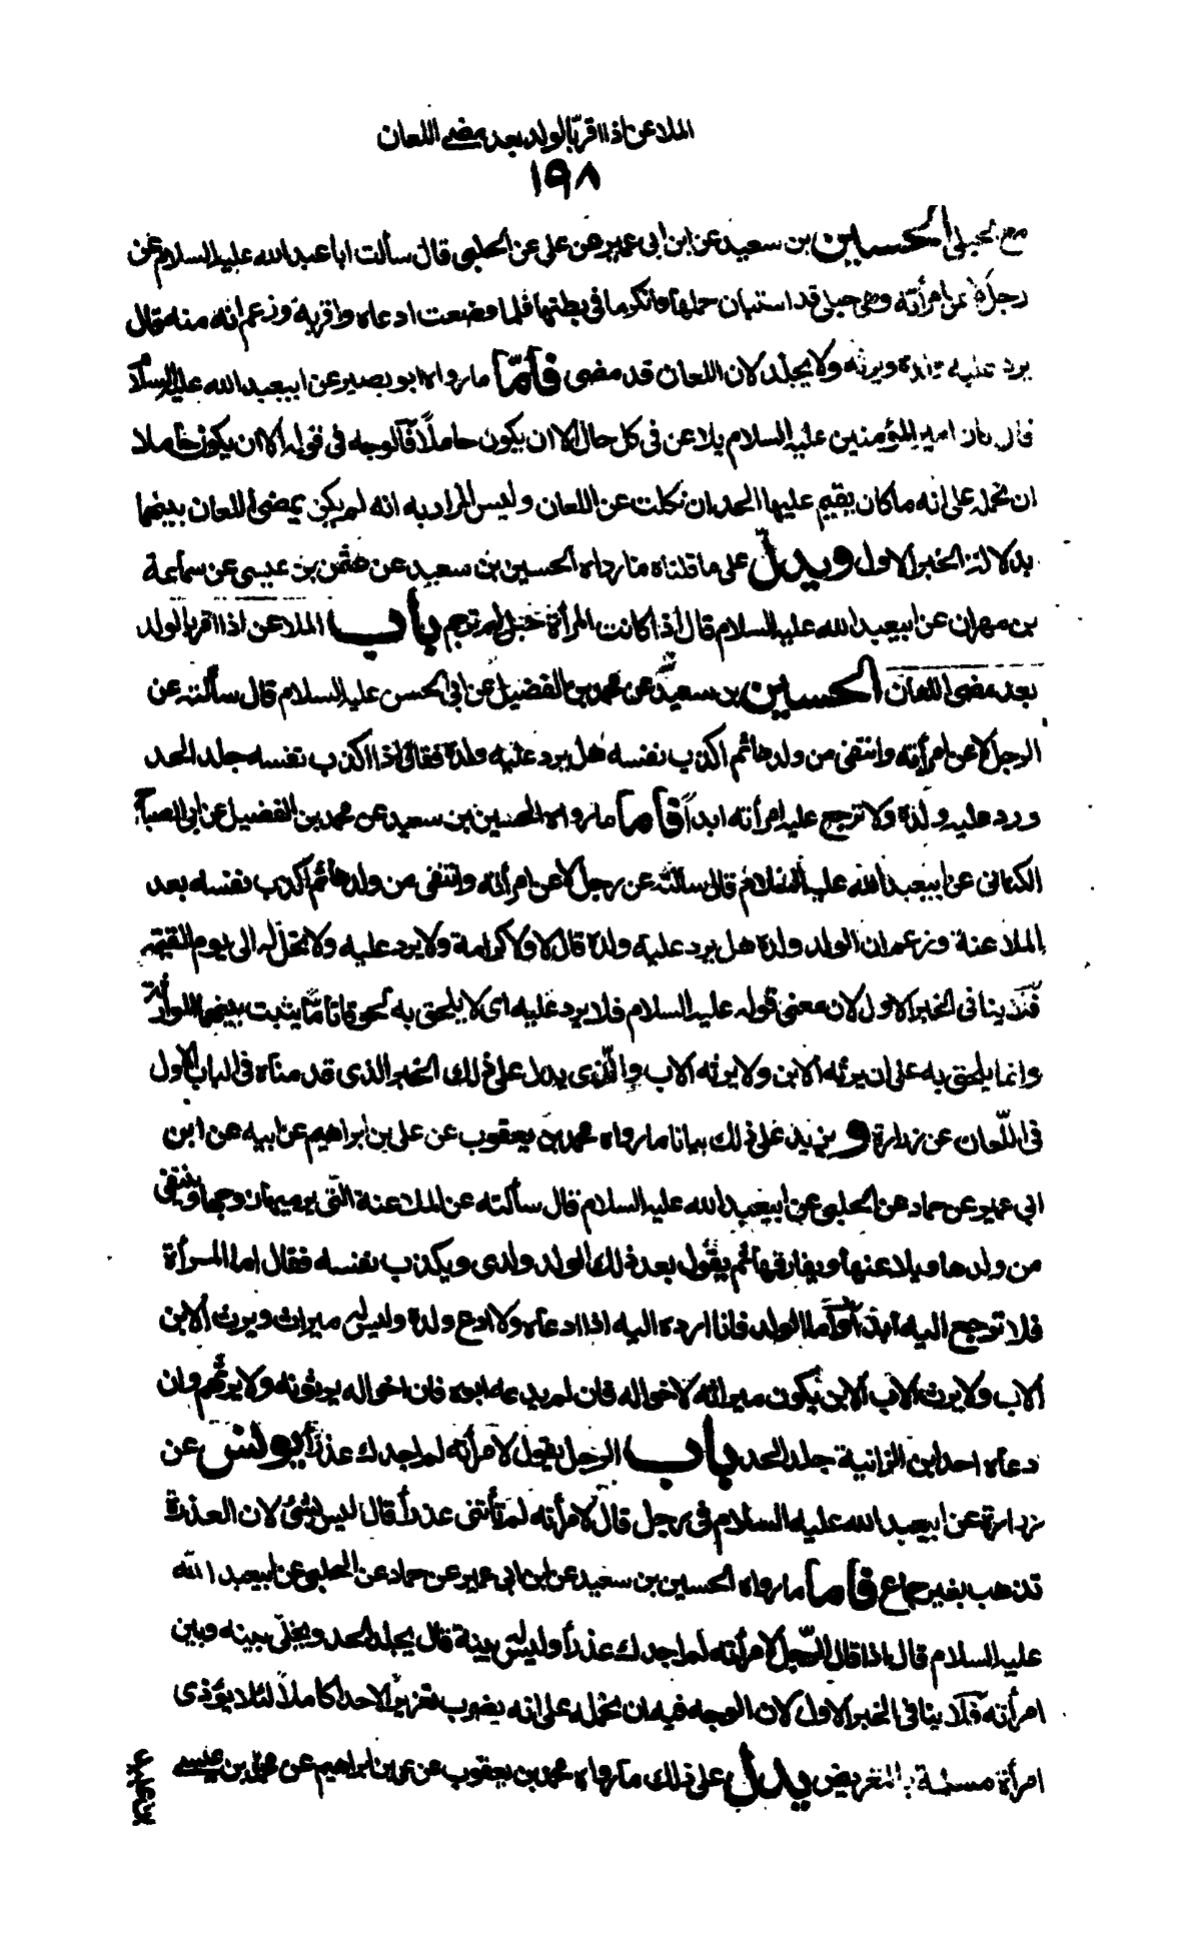 الملاعن اذا اقر بالولد بعد مضى اللعان
١٩٨
مع الحبلى الحسين بن سعيد عن ابن ابى عمير عن على عن الحلبى قال سألت ابا عبد الله عليه السلام عن
رجل لاعن امرأته وهى حبلى قد استبان حملها وانكر ما فى بطنها فلما وضعت ادعاه واقر به وزعم انه منه قال
يرد عليه ولده ويرثه ولا يجلد لان اللعان قد مضى فأمّا ما رواه ابو بصير عن ابيعبد الله عليه السلام
قال كان امير المؤمنين عليه السلام يلاعن فى كل حال الا ان يكون حاملاً فالوجه فى قوله الا ان يكون حاملا
ان نحمله على انه ما كان يقيم عليها الحد ان نكلت عن اللعان وليس المراد به انه لم يكن يمضى اللعان بينهما
بدلالة الخبر الاول ويدلّ على ما قلناه ما رواه الحسين بن سعيد عن عثمن بن عيسى عن سماعة
بن مهران عن ابيعبد الله عليه السلام قال اذا كانت المرأة حبلى لم ترجم باب الملاعن اذا اقر بالولد
بعد مضى اللعان الحسين بن سعيد عن محمد بن الفضيل عن ابى الحسن عليه السلام قال سألته عن
الرجل لاعن امرأته وانتفى من ولدها ثم اكذب نفسه هل يرد عليه ولده فقال اذا اكذب نفسه جلد الحد
ورد عليه ولده ولا ترجع عليه امرأته ابداً فاما ما رواه الحسين بن سعيد عن محمد بن الفضيل عن ابى الصباح
الكنانى عن ابيعبد الله عليه السلام قال سألته عن رجل لاعن امرأته وانتفى من ولدها ثم اكذب نفسه بعد
الملاعنة وزعم ان الولد ولده هل يرد عليه ولده قال لا ولا كرامة ولا يرد عليه ولا تحل له الى يوم القيمة
فلا ينافى الخبر الاول لان معنى قوله عليه السلام فلا يرد عليه اى لا يلحق به لحوقا تامّا يثبت بينهما الموارثة
وانما يلحق به على ان يرثه الابن ولا يرثه الاب والّذى يدل على ذلك الخبر الذى قدمناه فى الباب الاول
فى اللّعان عن زرارة ويزيد على ذلك بيانا ما رواه محمد بن يعقوب عن على بن ابراهيم عن ابيه عن ابن
ابى عمير عن حماد عن الحلبى عن ابيعبد الله عليه السلام قال سألته عن الملاعنة الّتى يرميها زوجها وينتفى
من ولدها ويلاعنها ويفارقها ثم يقول بعد ذلك الولد ولدى ويكذب نفسه فقال اما المرأة
فلا ترجع اليه ابداً وأما الولد فانا ارده اليه اذا ادعاه ولا ادع ولده وليس له ميراث ويرث الابن
الاب ولا يرث الاب الابن يكون ميراثه لاخواله فان لم يدعه ابوه فان اخواله يرثونه ولا يرثهم وان
دعاه احد ابن الزانية جلد الحد باب الرجل يقول لامرأته لم اجدك عذرأ يونس عن
زرارة عن ابيعبد الله عليه السلام فى رجل قال لامرأته لم تأتنى عذرأ قال ليس بشئ لان العذرة
تذهب بغير جماع فاما ما رواه الحسين بن سعيد عن ابن ابى عمير عن حماد عن الحلبى عن ابيعبد الله
عليه السلام قال اذا قال الرّجل لامرأته لم اجدك عذرأ وليس له بينة قال يجلد الحد ويخلّى بينه وبين
امرأته فلا ينافى الخبر الاول لان الوجه فيه ان نحمله على انه يضرب تعزير الا حدا كاملاً لئلا يؤذى
امرأة مسلمة بالتعريض يدل على ذلك ما رواه محمد بن يعقوب عن على بن ابراهيم عن محمد بن عيسى